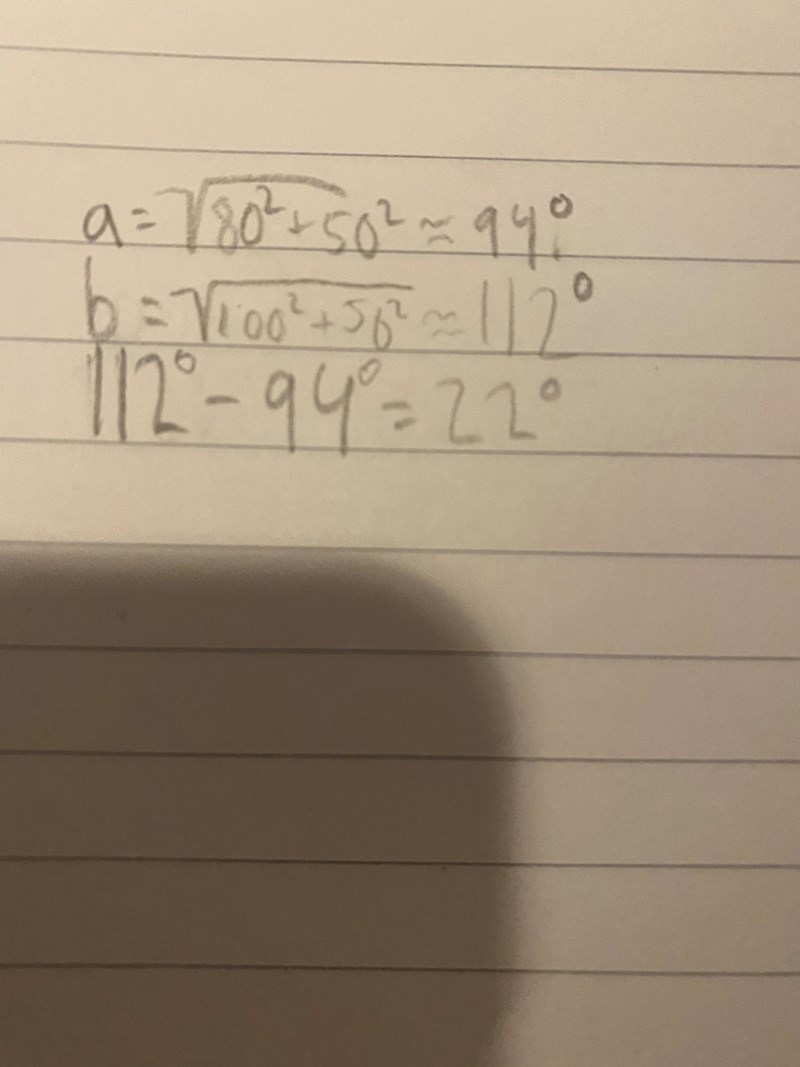 a = √80² + 50² ≈ 94°
b = √100² + 50² ≈ 112°
112° - 94° = 22°